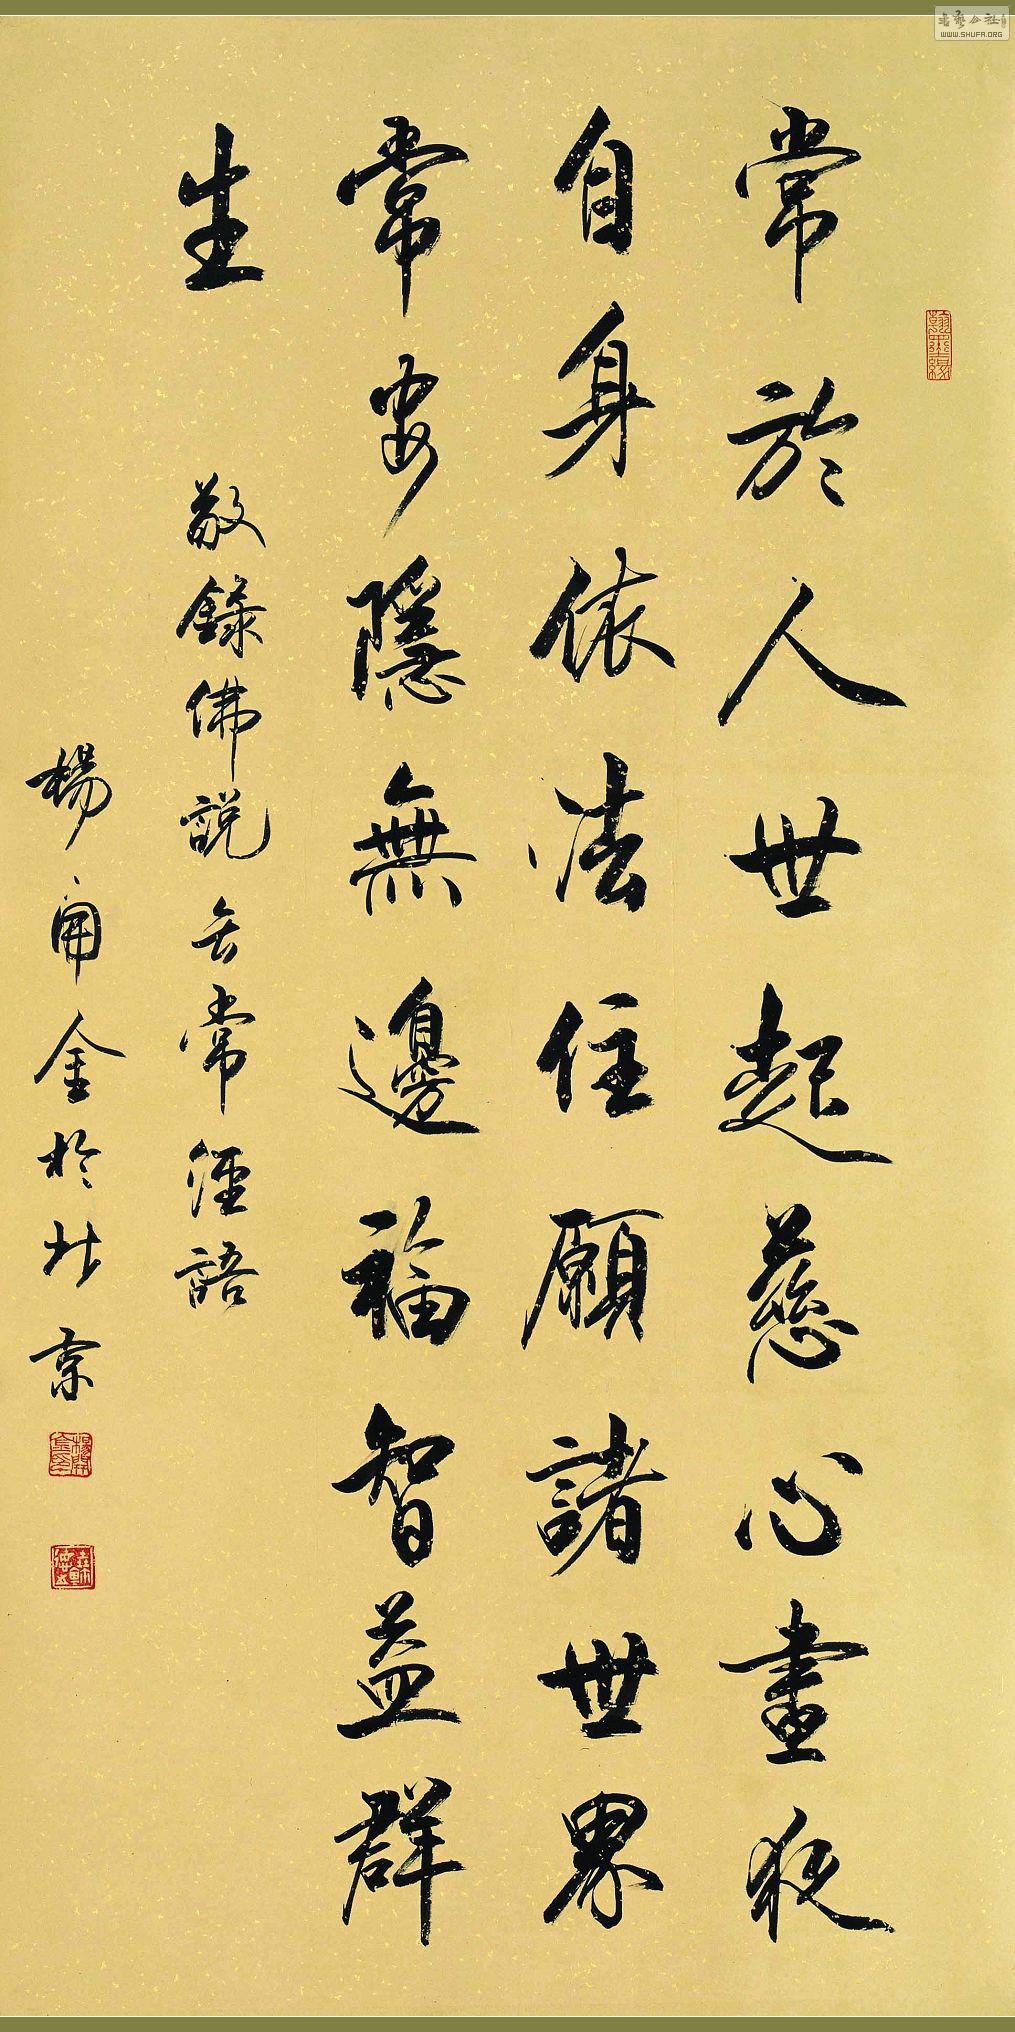 常於人世起慈心晝夜
自身依法住願諸世界
常安隱無邊福智益群
生 敬錄佛說無常經語
楊開金於北京
翰墨緣
WWW.SHUFA.ORG